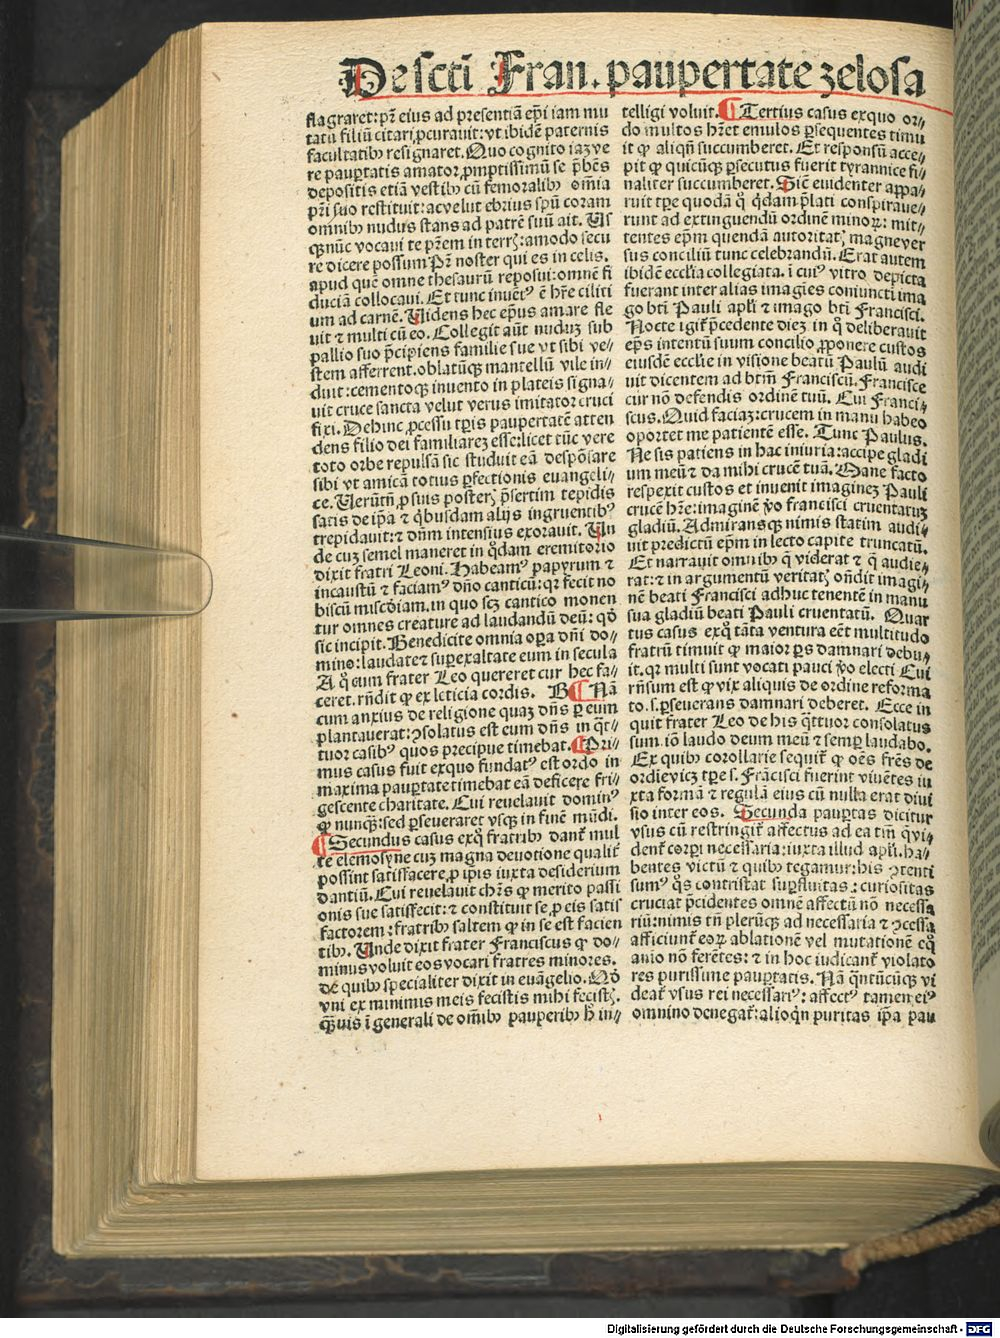 De scti Fran. paupertate zelosa
flagraret: pr̄ eius ad presentiā ep̄i iam mu
tatū filiū citari ꝓcurauit: vt ibidē paternis
facultatibꝰ resignaret. Quo cognito iaꝫ ve
re paupertatis amator ꝓmptissimū se p̄bēs
depositis etiā vestibꝰ cū femoralibꝰ om̄ia
pr̄i suo restituit: ac velut ebrius spū coram
omnibꝰ nudus stans ad patrē suū ait. Us
qꝫ nūc vocaui te pr̄em in terrꝭ: amodo secu
re dicere possum Pr̄ noster qui es in celis.
apud quē omne thesaurū reposui: omnē fi
duciā collocaui. Et tunc inuētꝰ ē hr̄e ciliti
um ad carnē. Uidens hec ep̄us amare fle
uit ⁊ multi cū eo. Collegit aūt nuduꝫ sub
pallio suo p̄cipiens familie sue vt sibi ve⸗
stem afferrent. oblatūqꝫ mantellū vile in⸗
duit: cementoqꝫ inuento in plateis signa⸗
uit cruce sancta velut verus imitator cruci
fixi. Dehinc ꝓcessu tp̄is paupertatē atten
dens filio dei familiareꝫ esse: licet tūc vere
toto orbe repulsā sic studuit eā despōsare
sibi vt amicā totius ꝑfectionis euangeli⸗
ce. Uerūtn̄ ꝓ suis posterꝭ p̄sertim tepidis
satis de ip̄a ⁊ q̄busdam alijs ingruentibꝰ
trepidauit: ⁊ dn̄m intensius exorauit. Un
de cuꝫ semel maneret in q̇dam eremitorio
dixit fratri Leoni. Habeamꝰ papyrum ⁊
incaustū ⁊ faciamꝰ dn̄o canticū: qꝛ fecit no
biscū misc̄diam. in quo scꝫ cantico monen
tur omnes creature ad laudandū deū: qd̄
sic incipit. Benedicite omnia oꝑa dn̄i do⸗
mino: laudate ⁊ suꝑexaltate eum in secula
A q̊ cum frater Leo quereret cur hec fa⸗
ceret. rn̄dit ꝙ ex leticia cordis. B Nā
cum anxius de religione quaꝫ dn̄s ꝑ eum
plantauerat: ꝯsolatus est eum dn̄s in q̄t⸗
tuor casibꝰ quos precipue timebat. Pri⸗
mus casus fuit exquo fundatꝰ est ordo in
maxima pauꝑtate timebat eā deficere fri⸗
gescente charitate. Cui reuelauit dominꝰ
ꝙ nunqꝫ: sed ꝑseueraret vsqꝫ in finē mūdi.
Secundus casus exq̊ fratribꝰ danť mul
te elemosyne cuꝫ magna deuotione qualiť
possint satisfacere ꝓ ip̄is iuxta desiderium
dantiū. Cui reuelauit chr̄s ꝙ merito passi
onis sue satisfecit: ⁊ constituit se ꝓ eis satis
factorem: fratribꝰ saltem ꝙ in se est facien
tibꝰ. Unde dixit frater Franciscus ꝙ do⸗
minus voluit eos vocari fratres minores.
de quibꝰ specialiter dixit in euāgelio. Qd̄
vni ex minimis meis fecistis mihi fecistꝭ.
q̄ꝫuis ī generali de om̄ibꝰ pauperibꝰ h̄ in⸗
telligi voluit. Tertius casus exquo or⸗
do multos hr̄et emulos ꝑsequentes timu
it ꝙ aliqn̄ succumberet. Et responsū acce⸗
pit ꝙ quicūqꝫ ꝑsecutus fuerit tyrannice fi⸗
naliter succumberet. Sic̄ euidenter appa⸗
ruit tp̄e quodā q̊ q̇dam p̄lati conspiraue⸗
runt ad extinguendū ordinē minoꝝ: mit⸗
tentes ep̄m quendā autoritatꝭ magne ver
sus conciliū tunc celebrandū. Erat autem
ibidē eccl̄ia collegiata. ī cuiꝰ vitro depicta
fuerant inter alias imagīes coniuncti ima
go bt̄i Pauli apl̄i ⁊ imago bt̄i Francisci.
Nocte igiť p̄cedente dieꝫ in q̄ deliberauit
ep̄s intentū suum concilio ꝓponere custos
eiusdē ecclīe in visione beatū Paulū audi
uit dicentem ad btm̄ Franciscū. Francisce
cur nō defendis ordinē tuū. Cui Franci⸗
scus. Quid faciaꝫ: crucem in manu habeo
oportet me patientē esse. Tunc Paulus.
Ne sis patiens in hac iniuria: accipe gladi
um meū ⁊ da mihi crucē tuā. Mane facto
respexit custos et inuenit imagineꝫ Pauli
crucē hr̄e: imaginē v̊o francisci cruentatuꝫ
gladiū. Admiransqꝫ nimis statim audi⸗
uit predictū ep̄m in lecto capite truncatū.
Et narrauit omnibꝰ q̄ viderat ⁊ q̄ audie⸗
rat: ⁊ in argumentū veritatꝭ on̄dit imagi⸗
nē beati Francisci adhuc tenentē in manu
sua gladiū beati Pauli cruentatū. Quar
tus casus exq̊ tāta ventura eēt multitudo
fratrū timuit ꝙ maior ps damnari debu⸗
it. qꝛ multi sunt vocati pauci v̊o electi Cui
rn̄sum est ꝙ vix aliquis de ordine reforma
to. s. ꝑseuerans damnari deberet. Ecce in
quit frater Leo de his q̄ttuor consolatus
sum. iō laudo deum meū ⁊ semꝑ laudabo.
Ex quibꝰ corollarie sequiť ꝙ oēs frēs de
ordie vicꝫ tp̄e s. Frācisci fuerint viuētes iu
xta formā ⁊ regulā eius cū nulla erat diui
sio inter eos. Secunda pauꝑtas dicitur
vsus cū restringiť affectus ad ea tm̄ q̄ vi⸗
denť corꝑi necessaria: iuxta illud apl̄i. ha⸗
bentes victū ⁊ quibꝰ tegamur: his ꝯtenti
sumꝰ q̊s contristat suꝑfluitas: curiositas
cruciat p̄cidentes omnē affectū nō necessa
riū: nimis tn̄ plerūqꝫ ad necessaria ⁊ ꝯcessa
afficiunť eoꝝ ablationē vel mutationē eq̊
aīo nō ferētes: ⁊ in hoc iudicanť violato
res purissime pauꝑtatis. Nā q̄ntūcūqꝫ vi
deať vsus rei necessariꝰ: affectꝰ tamen eiꝰ
omnino denegať: alioqn̄ puritas ip̄a pau
Digitalisierung gefördert durch die Deutsche Forschungsgemeinschaft - DFG